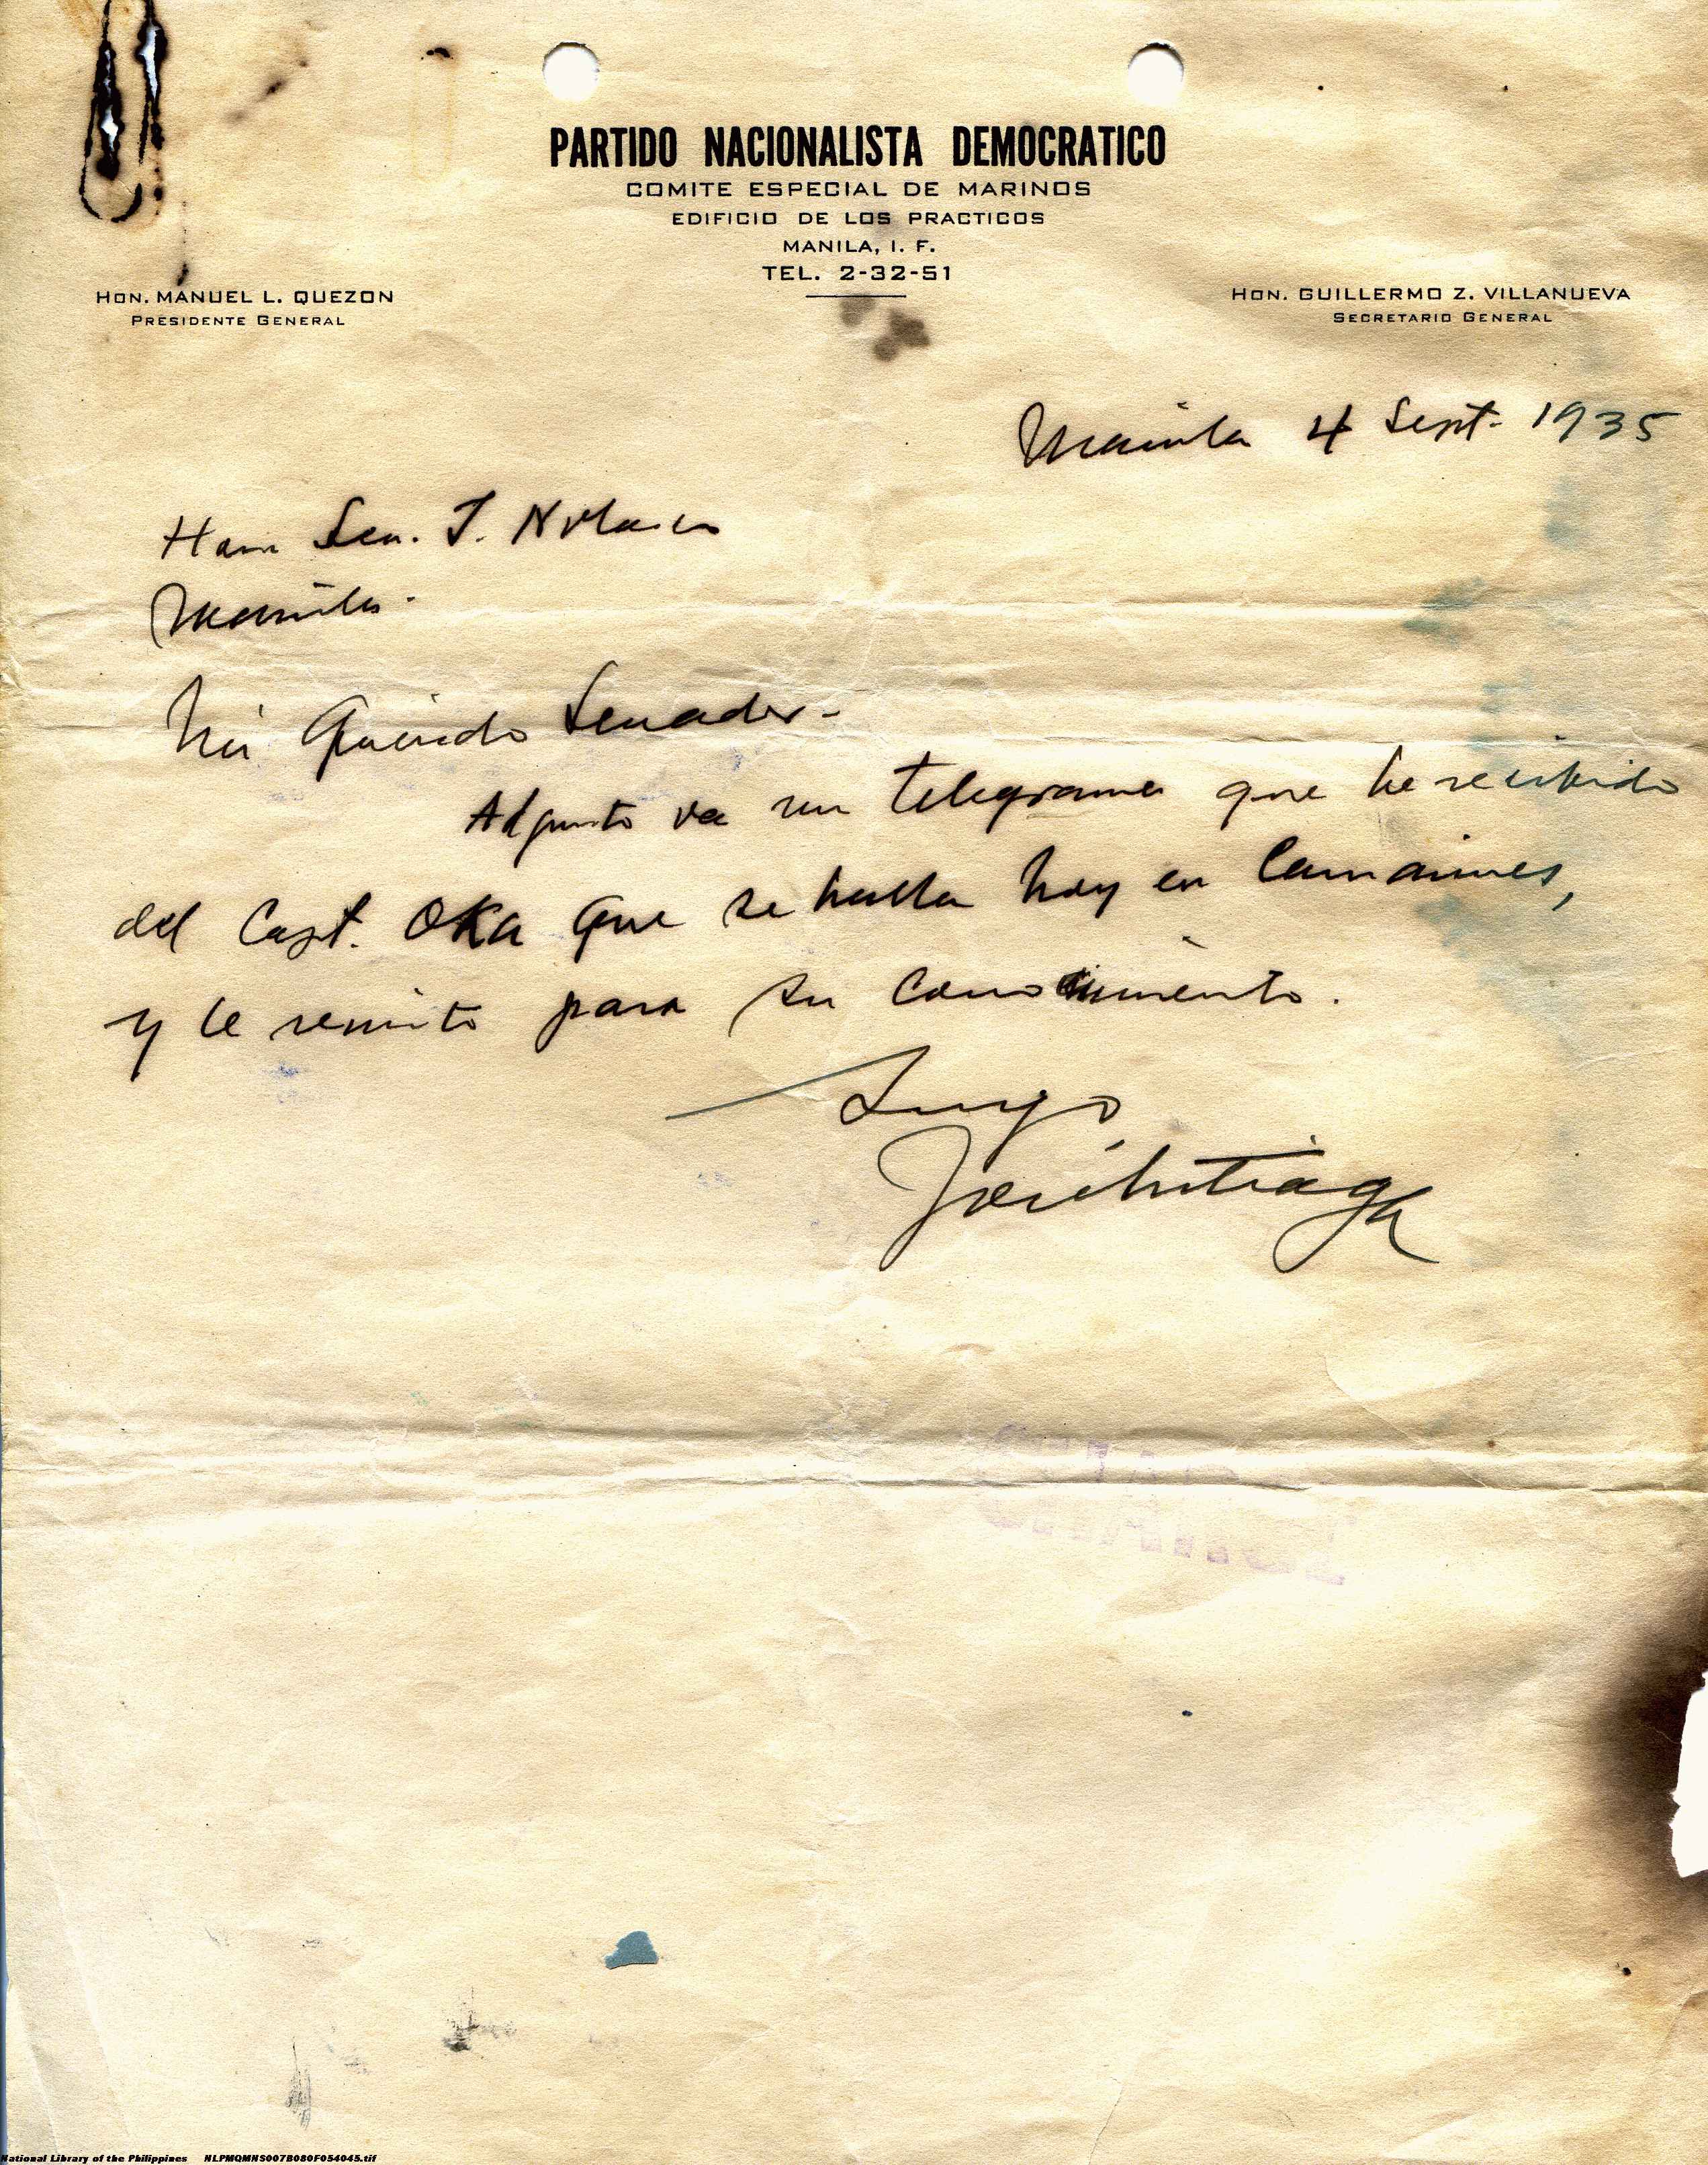 PARTIDO NACIONALISTA DEMOCRATICO
COMITE ESPECIAL DE MARINOS
EDIFICIO DE LOS PRACTICOS
MANILA, I. F.
TEL. 2-32-51
HON. MANUEL L. QUEZON
PRESIDENTE GENERAL
HON. GUILLERMO Z. VILLANUEVA
SECRETARIO GENERAL
Manila 4 Sept. 1935
Hon Sen. T. Nolasco
Manila.
Mi Querido Senador-
Adjunto va un telegrama que he recibido
del Capt. OKA que se halla hoy en Camarines,
y le remito para su conocimiento.
Suyo
National Library of the Philippines NLPMQMNS007B080F054045.tif